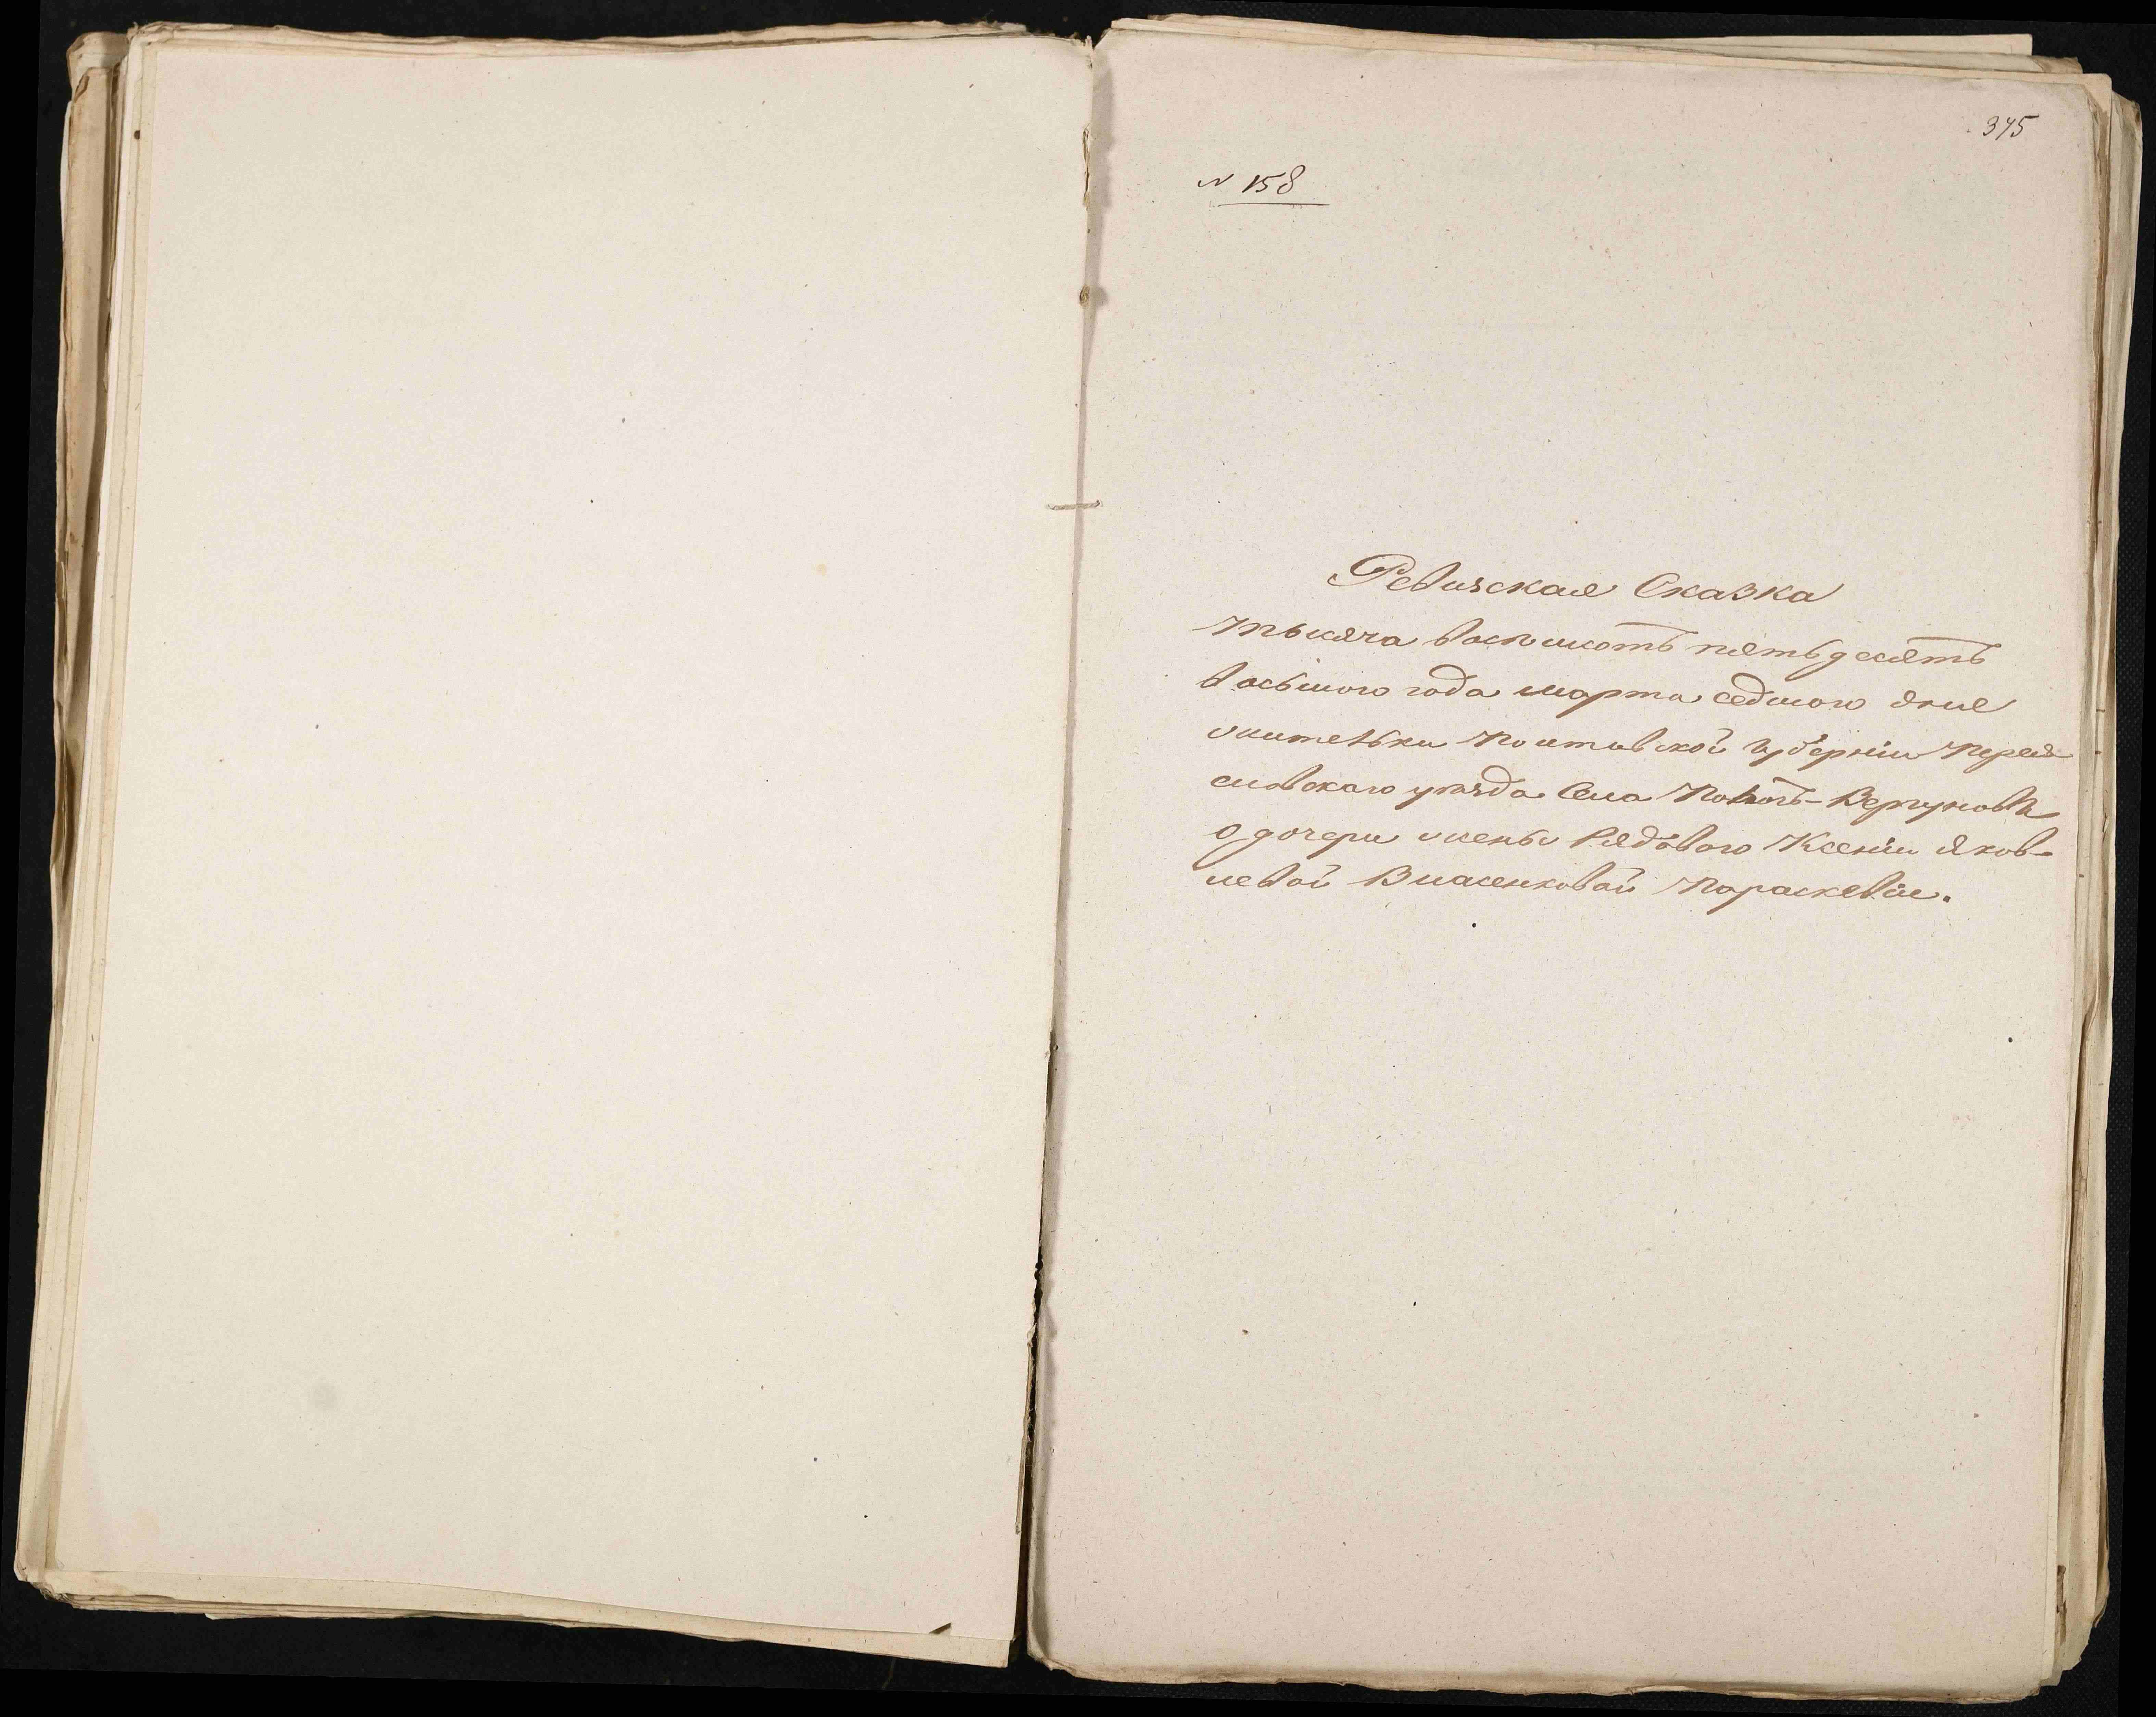 375
N 158
Ревизская Сказка
тысяча восемьсотъ пятьдесятъ
восьмого года марта седмого дня
жительки Полтавской губерніи Перея-
славскаго уезда Села -Вергуновъ
о дочери жены Рядоваго Ксеніи Яков-
левой Власенковой Параскевіи.